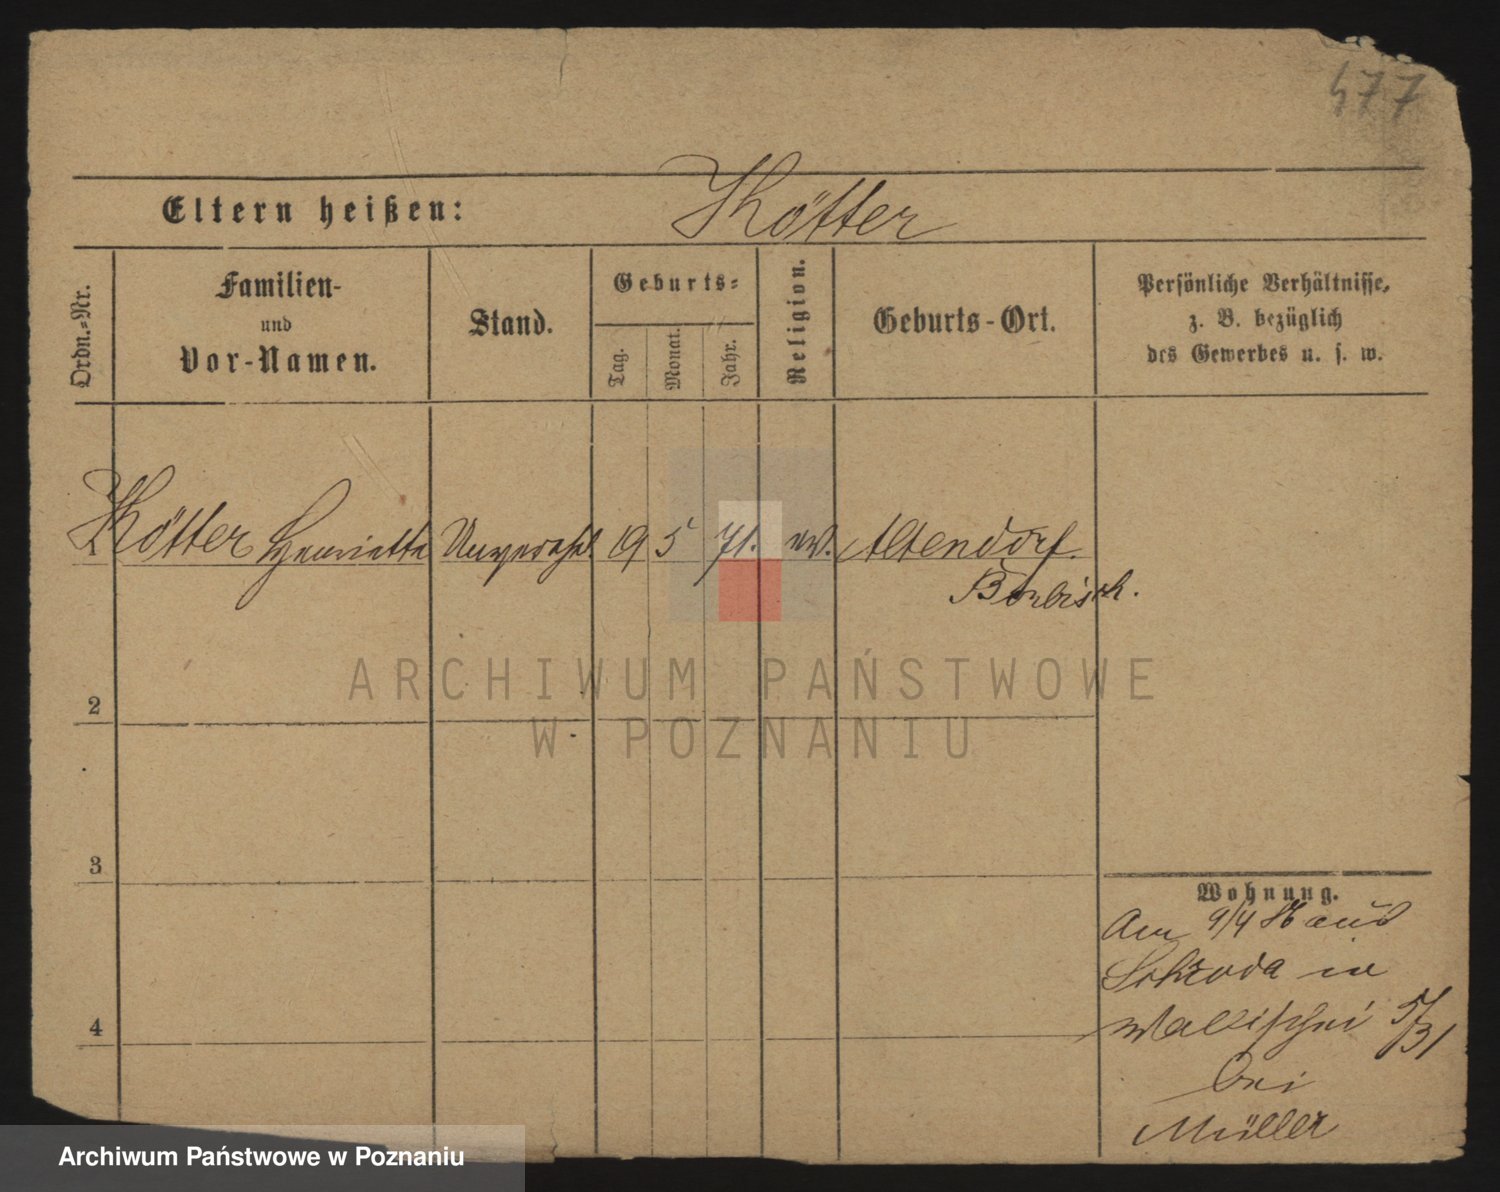 477
Eltern heißen: Kötter
Ordn.=Nr.
Familien-
und
Vor-Namen.
Stand.
Geburts=
Tag.
Monat.
Jahr.
Religion.
Geburts-Ort.
Persönliche Verhältnisse,
z. B. bezüglich
des Gewerbes u. s. w.
1 Kötter Henriette Unverehel. 19 5 71. ev. Altendorf
Bomst.
2
3
4
Wohnung.
Am 9/4 aus
Schroda in
Wallischei 5/31
bei
Müller
ARCHIWUM PAŃSTWOWE
W POZNANIU
Archiwum Państwowe w Poznaniu